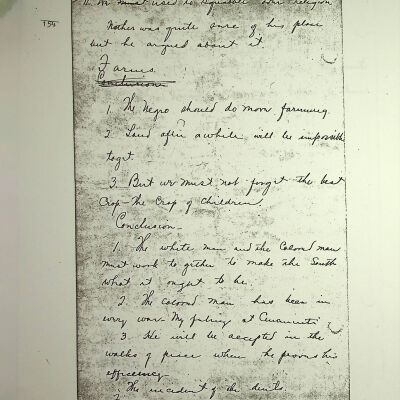 T54
must used to equitable our religion
Mother was quite sure of his place
but he argued about it.
Farms
Conclusion
1. The Negro should do more farming.
2. Land after awhile will be impossible
to get.
3. But we must not forget the best
Crop - the Crop of Children.
Conclusion -
1. The white man and the Colored man
must work to gether to make the South
what it ought to be.
2. The colored man has been in
every war. My feeling at Cincinnati
3. He will be accepted in the
walks of peace when he proves his
efficiency -
The incident of the